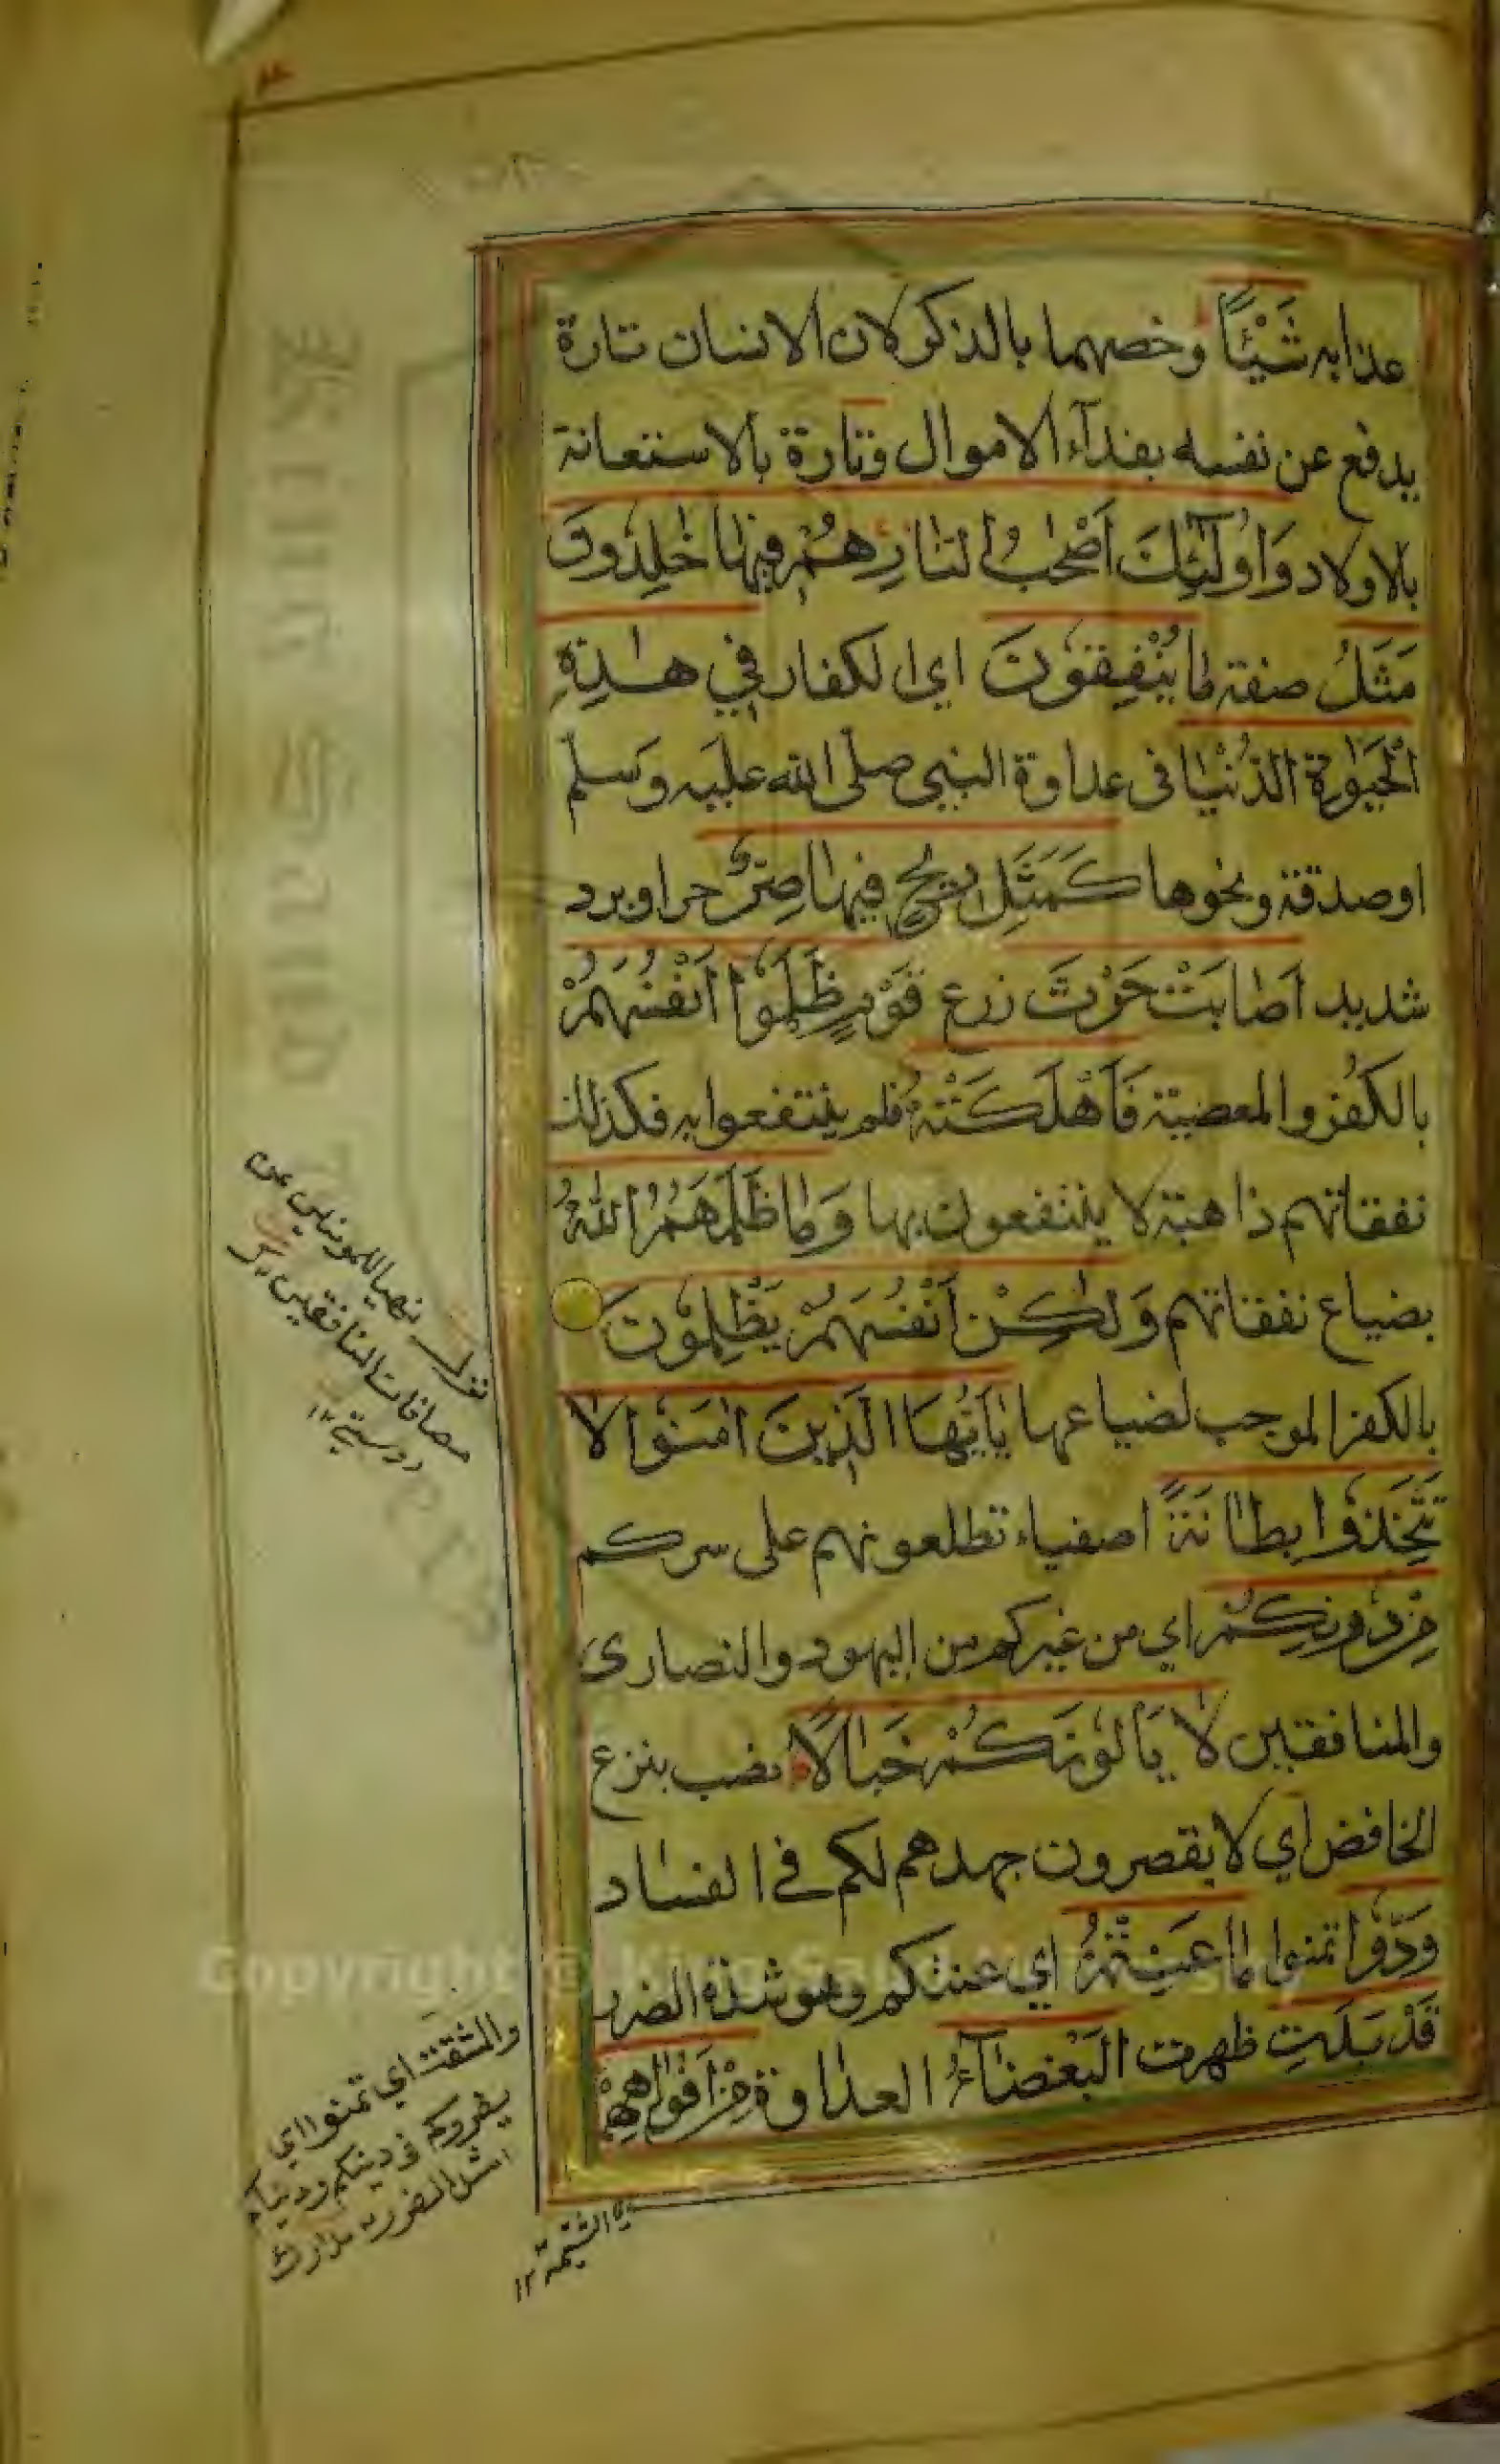 عذابه شَيْئًا وخصهما بالذكر لان الانسان تارة
يدفع عن نفسه بفدآء الاموال وتارة بالاستعانة
بالاولاد وَاُولٰٓئِكَ اَصْحٰبُ النَّارِ هُمْ فِيْهَا خٰلِدُوْنَ
مَثَلُ صفة مَا يُنْفِقُوْنَ اي الكفار فِي هٰذِهِ
الْحَيٰوةِ الدُّنْيَا فى عداوة النبي صلى الله عليه وسلم
او صدقة ونحوها كَمَثَلِ رِيْحٍ فِيْهَا صِرٌّ حر او برد
شديد اَصَابَتْ حَرْثَ زرع قَوْمٍ ظَلَمُوْا اَنْفُسَهُمْ
بالكفر والمعصية فَاَهْلَكَتْهُ فلم ينتفعوا به فكذلك
نفقاتهم ذاهبة لا ينتفعون بها وَمَا ظَلَمَهُمُ اللّٰهُ
بضياع نفقاتهم وَلٰكِنْ اَنْفُسَهُمْ يَظْلِمُوْنَ
بالكفر الموجب لضياعها يٰاَيُّهَا الَّذِيْنَ اٰمَنُوْا لَا
تَتَّخِذُوْا بِطَانَةً اصفياء تطلعونهم على سركم
مِنْ دُوْنِكُمْ اي من غيركم من اليهود والنصارى
والمنافقين لَا يَاْلُوْنَكُمْ خَبَالًا نصب بنزع
الخافض اي لا يقصرون جهدهم لكم في الفساد
وَدُّوْا تمنوا مَا عَنِتُّمْ اي عنتكم وهو شدة الضرر
قَدْ بَدَتِ ظهرت الْبَغْضَآءُ العداوة مِنْ اَفْوَاهِهِمْ
نزلـ نهيا للمومنين عن
مصافات المنافقين
دوستي ١٢
والمشقة اي تمنوا ان
يضروكم فى دينكم ودنياكم
اشد الضرر مدارك